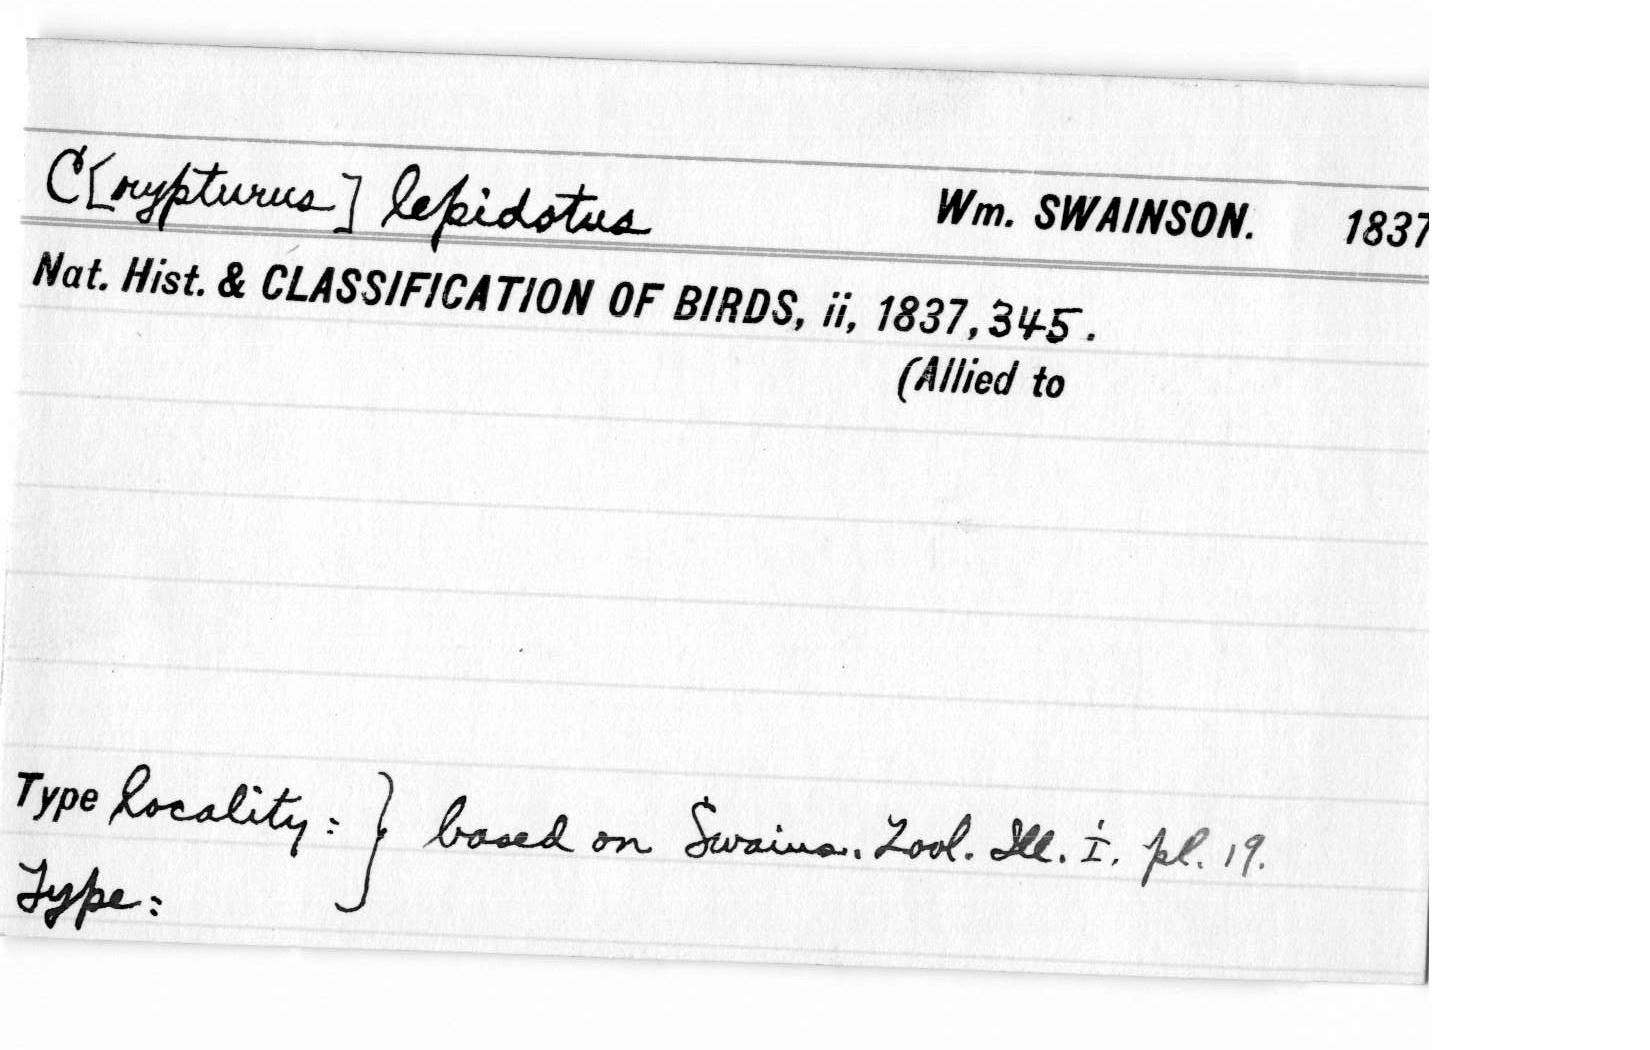 C[rypturus] lepidotus Wm. SWAINSON. 1837
Nat. Hist. & CLASSIFICATION OF BIRDS, ii, 1837, 345.
(Allied to
Type locality: } based on Swains. Zool. Ill. I. pl. 19.
Type: